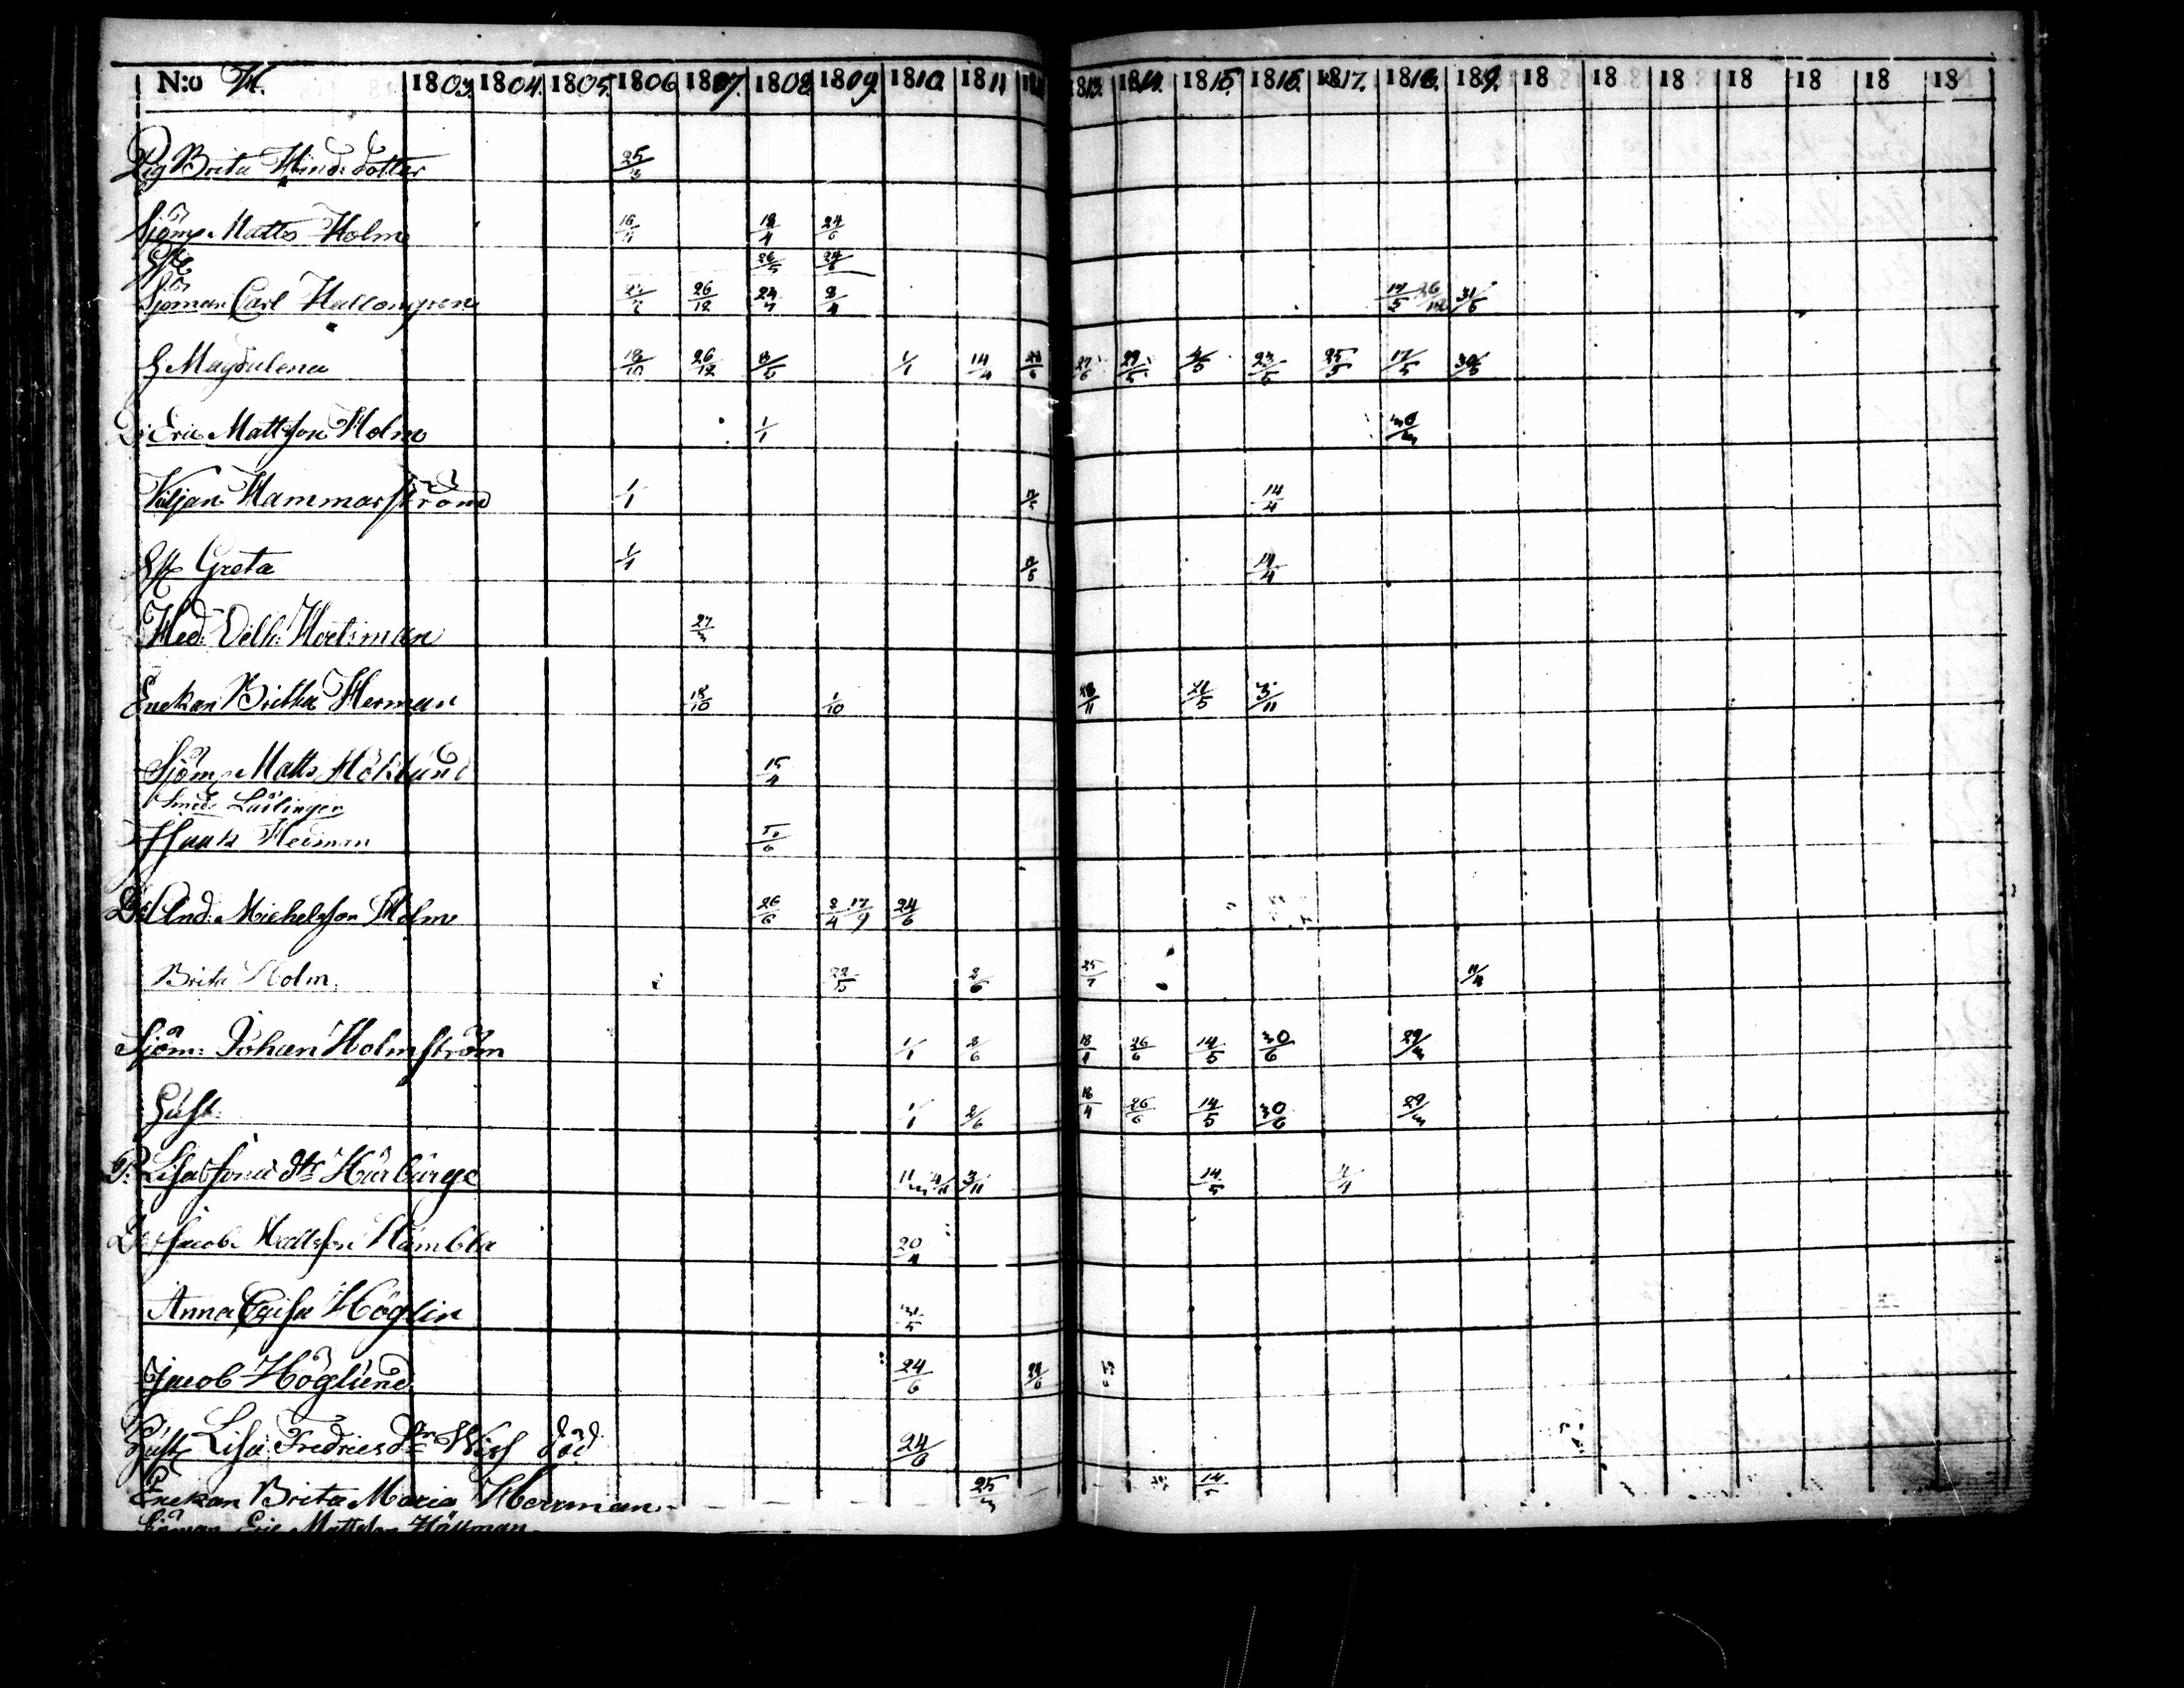 N:o H. 1803. 1804. 1805. 1806 1807. 1808 1809. 1810 1811 1813. 1814. 1815. 1816. 1817. 1818. 189. 18 18 18 18 18 18 18
Pig Brita Hind: dotter 25/3
Sjöm: Matts Holm 16/4 18/4 24/6
26/5 24/6
Sjöman Carl Hallongren 26/12 24/7 2/4 17/5 26/12 31/5
H Magdalena 18/10 26/12 1/1 14/4 27/6 29/5 23/5 25/5 17/5 30/5
D: Eric Mattsson Holm 1/1 30/3
Viljan Hammarström 1/1 14/4
H Greta 1/1 14/4
Hed: Vilh: Hortsman 27/3
Enckan Britha Herman 18/10 1/10 28/11 21/5 3/11
Sjöm: Matts Höklund 15/4
Smeds Lärlingen
Isaak Hedman
Dr And: Michelsson Holm 26/6 2/4 17/9 24/6
Brita Holm. 22/5 2/6 25/7 11/4
Sjöm: Johan Holmström 1/1 2/6 18/4 26/6 14/5 30/6 29/3
Hust. 1/1 2/6 18/4 26/6 14/5 30/6 29/3
P. Lisa dtr Harburge 3/11 14/5
Dr Jacob Mattsson Hambla 20/4
Anna Cajsa Höglin
Jacob Höglund 24/6 24/6
Hust Lisa Fredricsdtr Wish död 24/6
Enckan Brita Maria Herrman 25/3 14/5
Sjöman Eric Mattsson